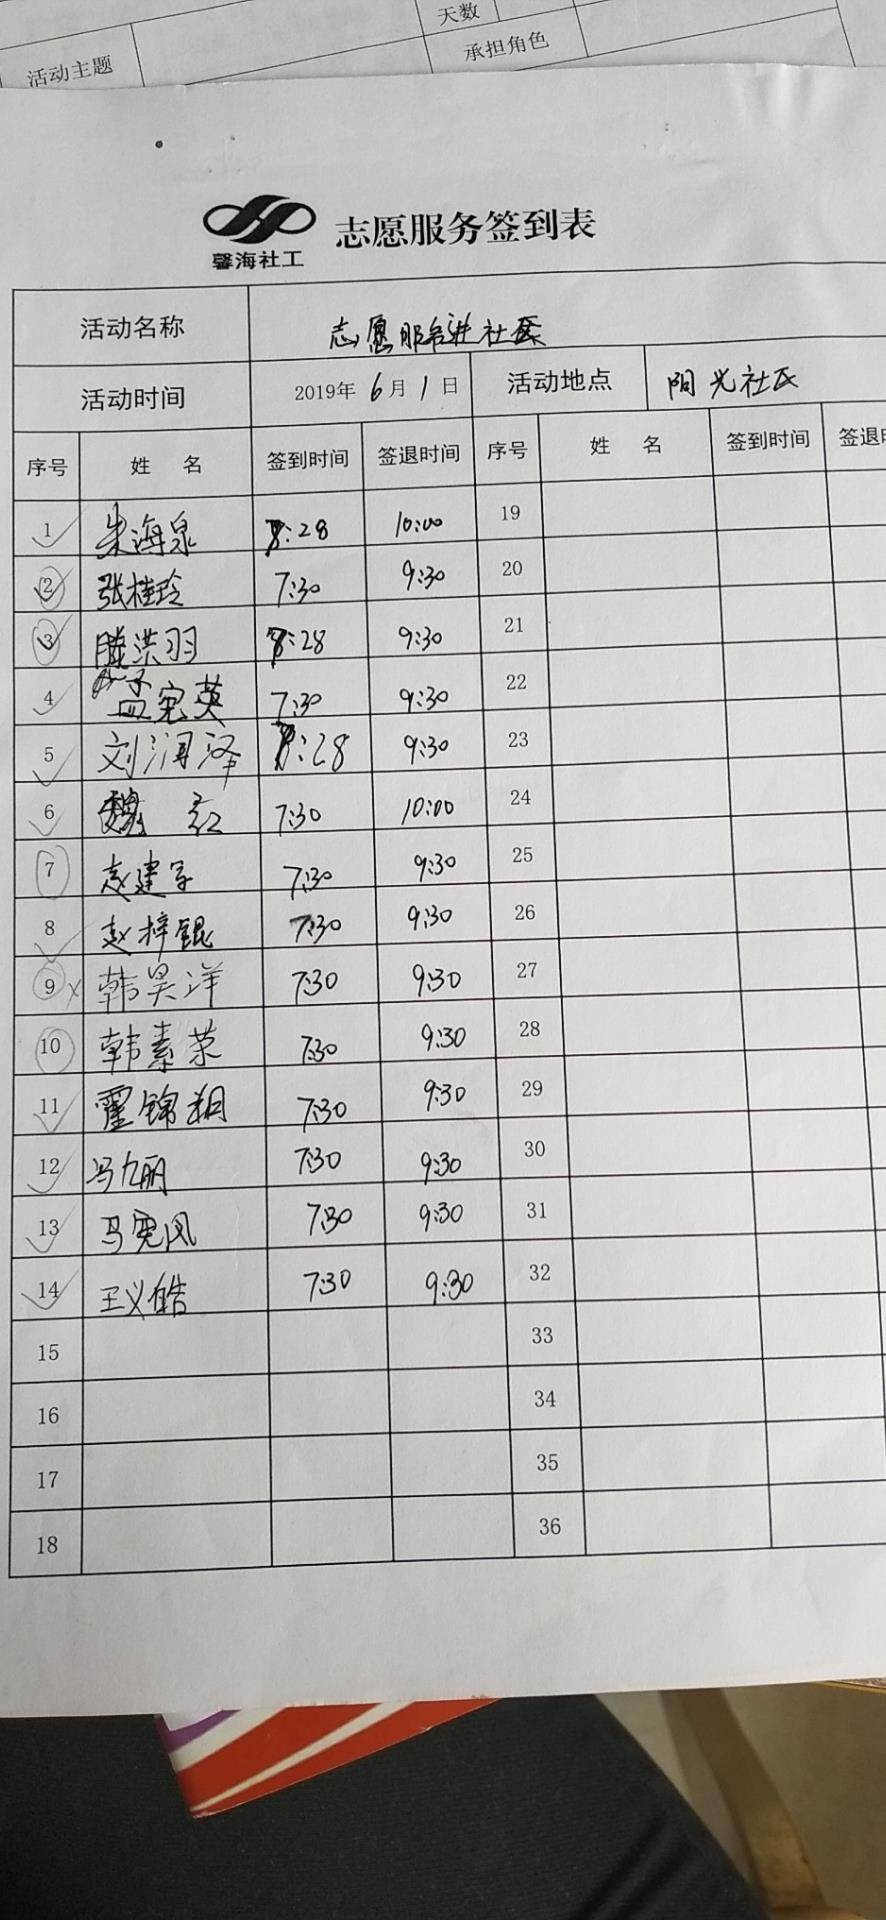 天数
活动主题 承担角色
馨海社工
志愿服务签到表
活动名称 志愿服务进社区
活动时间 2019年 6月 1日 活动地点 阳光社区
序号 姓 名 签到时间 签退时间 序号 姓 名 签到时间 签退
1 朱海泉 7:28 10:00 19
2 张桂玲 7:30 9:30 20
3 滕洪羽 7:28 9:30 21
4 孟宪英 7:30 9:30 22
5 刘润泽 7:28 9:30 23
6 魏 红 7:30 10:00 24
7 赵建军 7:30 9:30 25
8 赵梓锟 7:30 9:30 26
9 韩昊洋 7:30 9:30 27
10 韩素荣 7:30 9:30 28
11 霍锦 7:30 9:30 29
12 冯九丽 7:30 9:30 30
13 马 7:30 9:30 31
14 王义皓 7:30 9:30 32
15 33
16 34
17 35
18 36